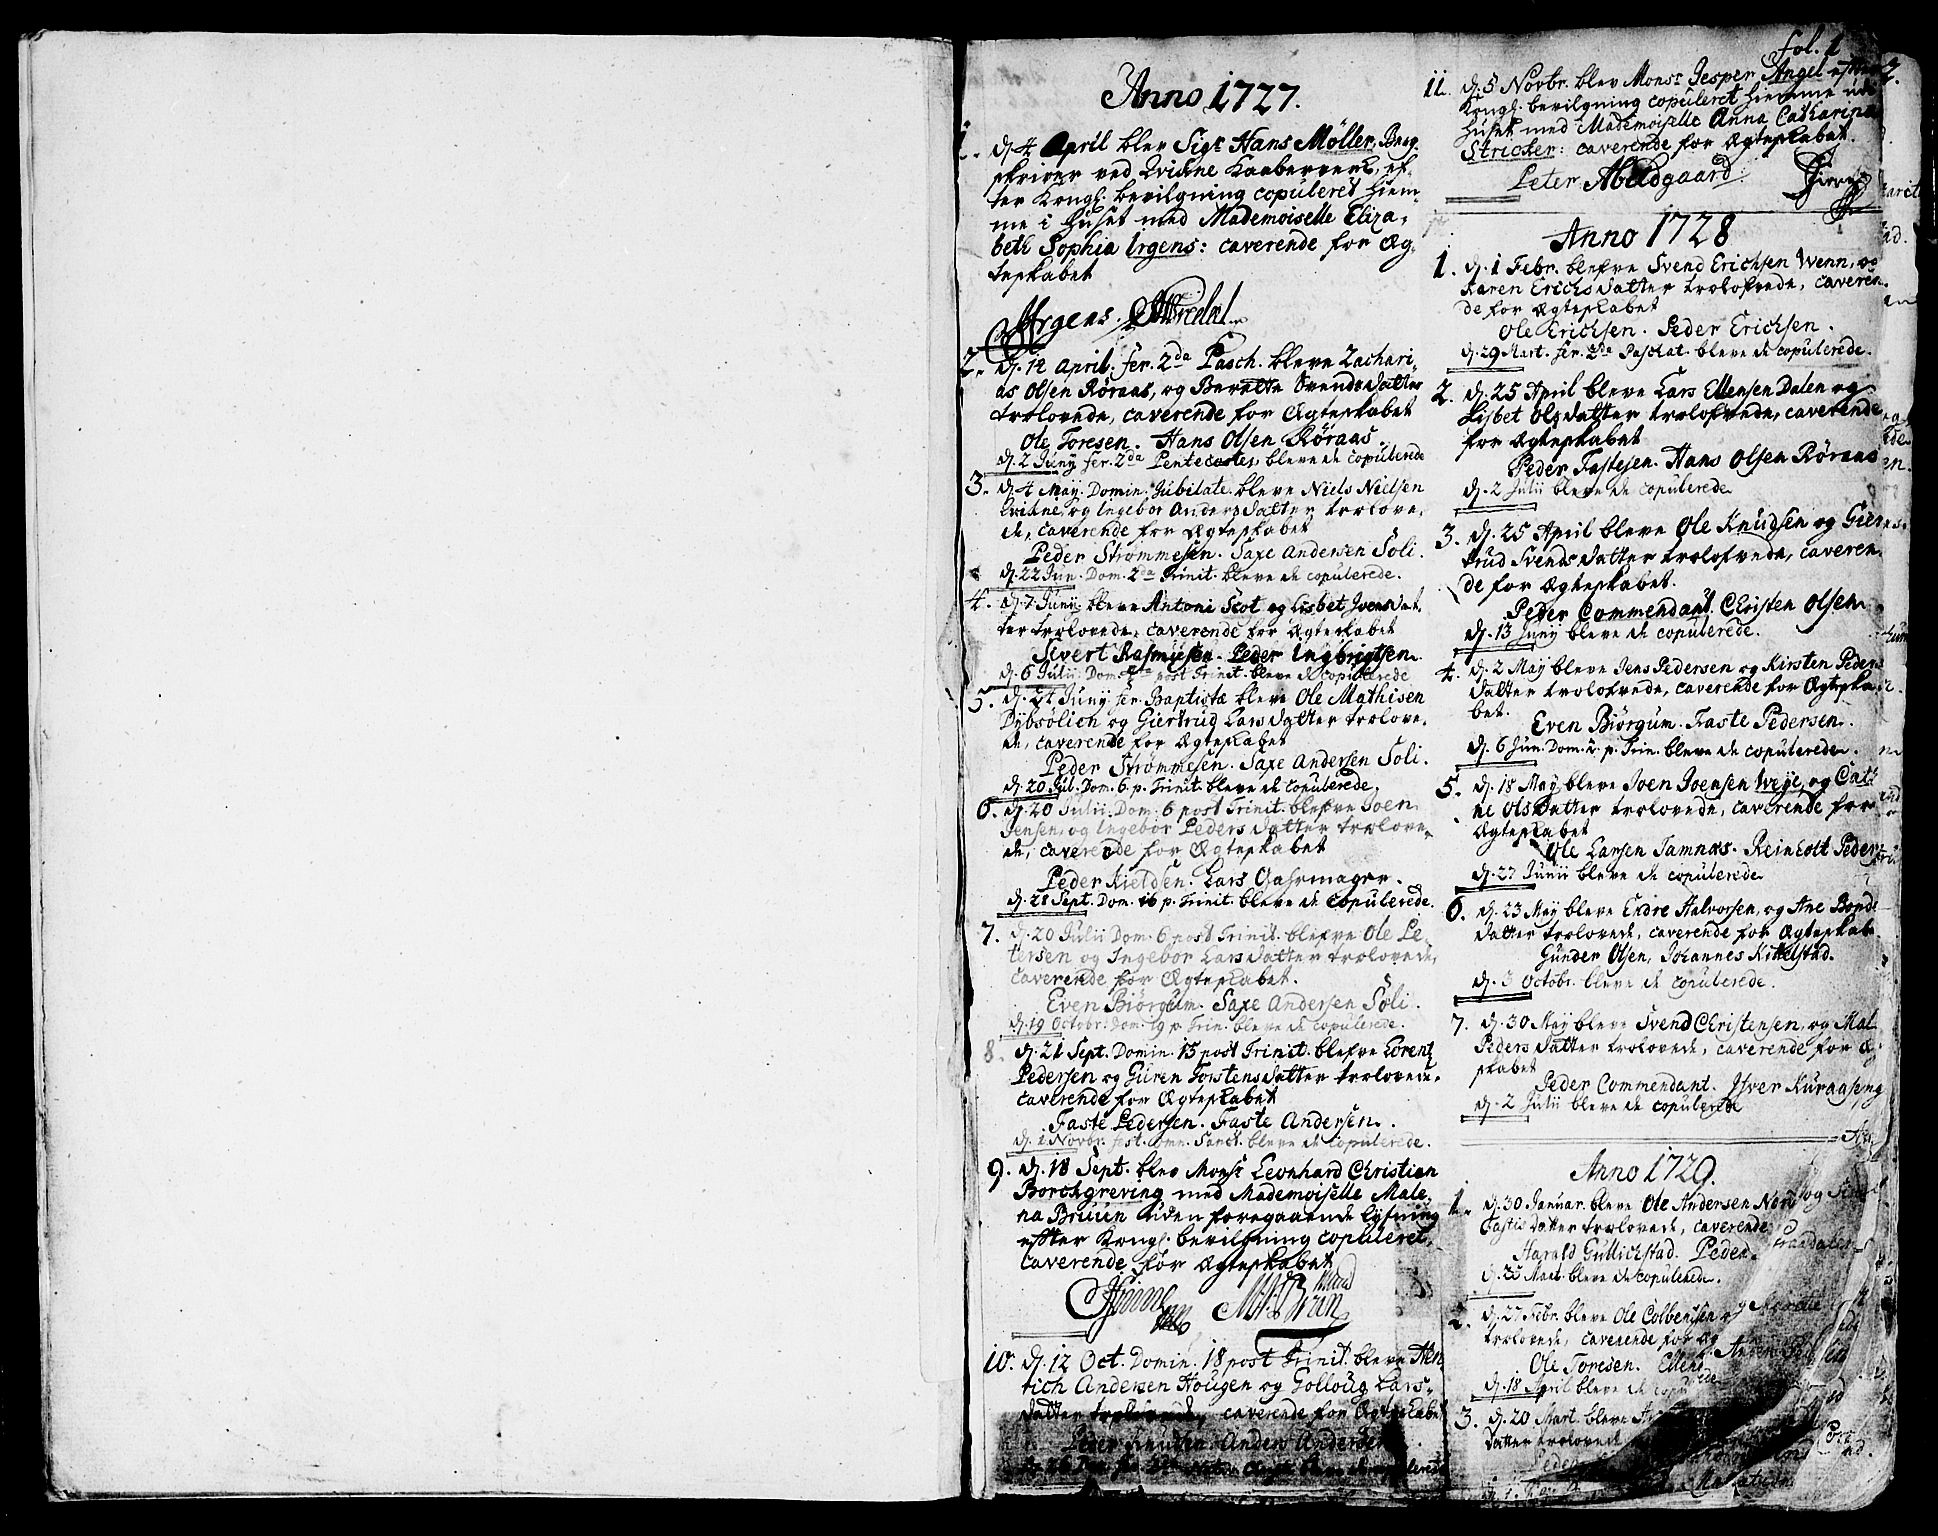 Anno 1727.
1. d. 4 April blev Sigr Hans Möller, Berg-
skriver ved Qvikne Kaaberverk, ef-
ter Kongl. bevilgning copuleret hiem-
me i huset med Mademoiselle Eliza-
beth Sophia Irgens: caverende for Æg-
teskabet
Irgens.
2. d. 14 April. fer. 2da Pasch. bleve Zachari-
as Olsen Röraas, og Berette Svendsdatter
trolovede, caverende for Ægteskabet
Ole Toresen. Hans Olsen Röraas.
d. 2 Junij fer. 2da Pentecostes bleve de copulerede
3. d. 4 May. Domin. Jubilate. bleve Niels Nielsen
Qvikne, og Ingebor Andersdatter trolove-
de, caverende for Ægteskabet
Peder Strømmesen. Saxe Andersen Soli.
d. 22 Jun. Dom. 2da Trinit. bleve de copulerede.
4. d. 7 Junij bleve Antoni Scot og Lisbet Joensdat-
ter trolovede, caverende for Ægteskabet
Sivert Rasmusen. Peder Ingbrigtsen.
d. 6 Julii. Dom. post Trinit. bleve de copulerede
5. d. 24 Junij fer. Baptistæ bleve Ole Mathisen
Dybsölien og Giertrud Larsdatter trolove-
de, caverende for Ægteskabet
Peder Strømmesen. Saxe Andersen Soli.
d. 20 Jul. Dom. 6 p. Trinit. bleve de copulerede.
6. d. 20 Julii. Dom. 6 post Trinit. blefve Joen
Jensen, og Ingebor Pedersdatter trolove-
de, caverende for Ægteskabet
Peder Kieldsen. Lars Gahrmager.
d. 28 Sept. Dom. 16 p. Trinit. bleve de copulerede.
7. d. 20 Julii Dom. 6 post Trinit. blefve Ole Pe-
tersen og Ingebor Larsdatter trolovede,
caverende for Ægteskabet.
Even Biörgum. Saxe Andersen Soli.
d. 19 Octobr. Dom. 19 p. Trin. bleve de copulerede.
8. d. 21 Sept. Domin. 15 post Trinit. blefve Lorentz
Pedersen og Guren Torstensdatter trolovede.
caverende for Ægteskabet
Faste Pedersen. Faste Andersen.
d. 1 Novbr. fest. omn. Sanct. bleve de copulerede.
9. d. 18 Sept. blev Monsr Leonhard Christian
Borchgreving med Mademoiselle Male-
na Bruun uden foregaaende lysning
efter Kongl. bevilgning copuleret,
caverende for Ægteskabet
10. d. 12 Oct. Domin. 18 post Trinit. bleve Hen-
rich Andersen Hougen og Golloug Lars-
datter trolovede, caverende for Ægteskabet
Peder Knudsen. Anders Andersen
fol. 1
11. d. 5 Novbr. blev Monsr Jesper Angel efter
Kongl. bevilgning copuleret hiemme udi
huset med Mademoiselle Anna Catharina
Stricker: caverende for Ægteskabet.
Peter Abildgaard.
Anno 1728
1. d. 1 Febr. blefve Svend Erichsen Wenn, og
Karen Erichsdatter trolofvede, caveren-
de for Ægteskabet
Ole Erichsen. Peder Erichsen.
d. 29 Mart. fer. 2da Paschat. bleve de copulerede.
2. d. 25 April bleve Lars Ellensen Dalen og
Lisbet Olsdatter trolofvede, caverende
for Ægteskabet
Peder Fastesen. Hans Olsen Röraas
d. 2 Julii bleve de copulerede
3. d. 25 April bleve Ole Knudsen og Gier-
trud Svendsdatter trolofvede, caveren-
de for Ægteskabet.
Peder Commendant. Christen Olsen.
d. 13 Junij bleve de copulerede.
4. d. 2 May bleve Jens Pedersen og Kirsten Peders
datter trolofvede, caverende for Ægteska-
bet.
Even Biörgum. Faste Pedersen.
d. 6 Jun. Dom. 2. p. Trin. bleve de copulerede.
5. d. 18 May bleve Joen Joensen Weye, og Cath
ne Olsdatter trolovede, caverende for
Ægteskabet
Ole Larsen Tamnæs. Reinholt Peder
d. 27 Junii bleve de copulerede
6. d. 23 May bleve Endre Halvorsen, og Ane Bonde
datter trolovede, caverende for Ægteskab.
Gunder Olsen, Johannes Kittelstad.
d. 3 Octobr. bleve de copulerede.
7. d. 30 May bleve Svend Christensen, og Mal
Pedersdatter trolovede, caverende for Æg
skabet
Peder Commendant. Iver Kuraaseng
d. 2 Julii bleve de copulerede
Anno 1729.
1. d. 30 Januar. bleve Ole Andersen Nord og
Fastisdatter trolovede, caverende
Harald Gullichstad. Peder
d. Mart. bleve de copulerede.
2. d. 27 Febr. bleve Ole Colbensen og
trolovede, caverende for Æg
Ole Toresen. Ellens
d. 18 April bleve de copu
3. d. 20 Mart. bleve
datter trolovede
Peder